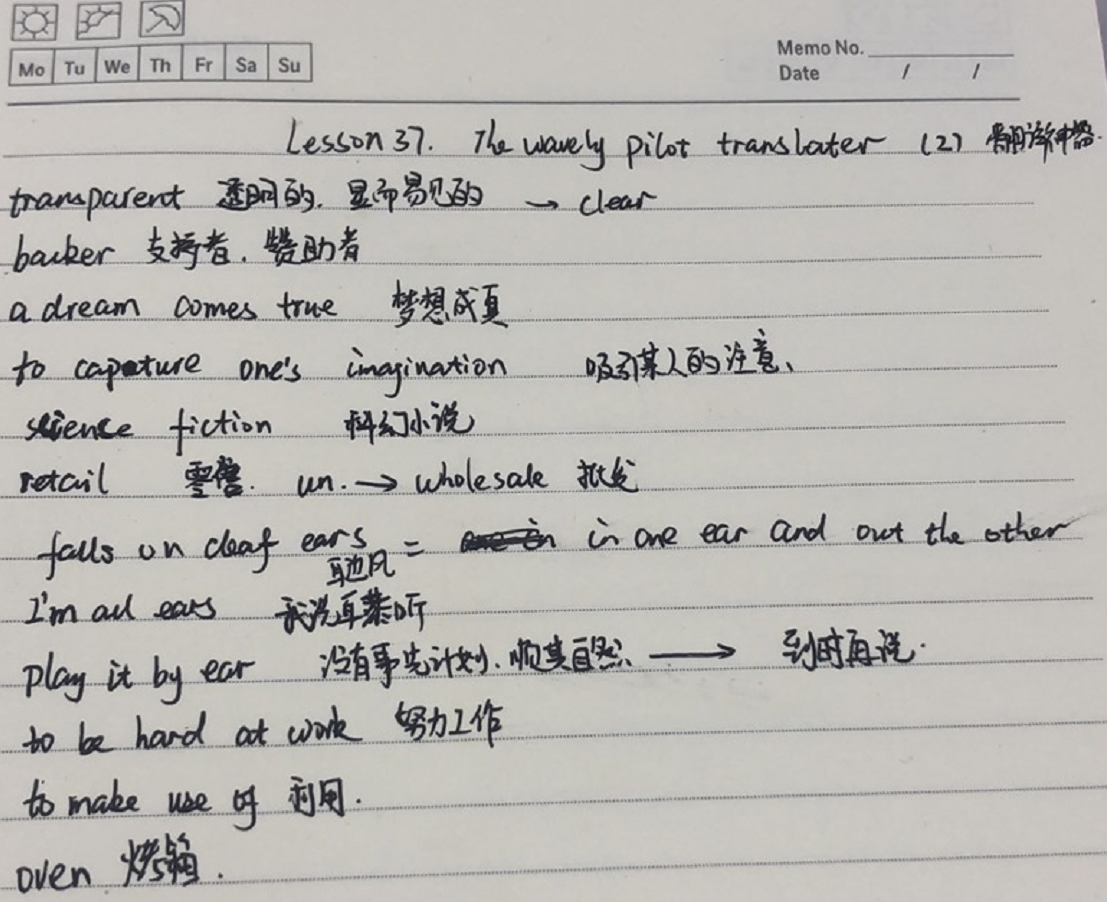 Mo Tu We Th Fr Sa Su
Memo No.
Date / /
Lesson 37. The wavely pilot translater (2) 翻译神器.
transparent 透明的. 显而易见的 → clear
backer 支持者. 赞助者
a dream comes true 梦想成真
to capature one's imagination 吸引某人的注意、
science fiction 科幻小说
retail 零售. un. → wholesale 批发
falls on deaf ears = in one ear and out the other
耳边风
I'm all ears 我洗耳恭听
play it by ear 没有事先计划. 顺其自然. → 到时再说.
to be hard at work 努力工作
to make use of 利用.
oven 烤箱.